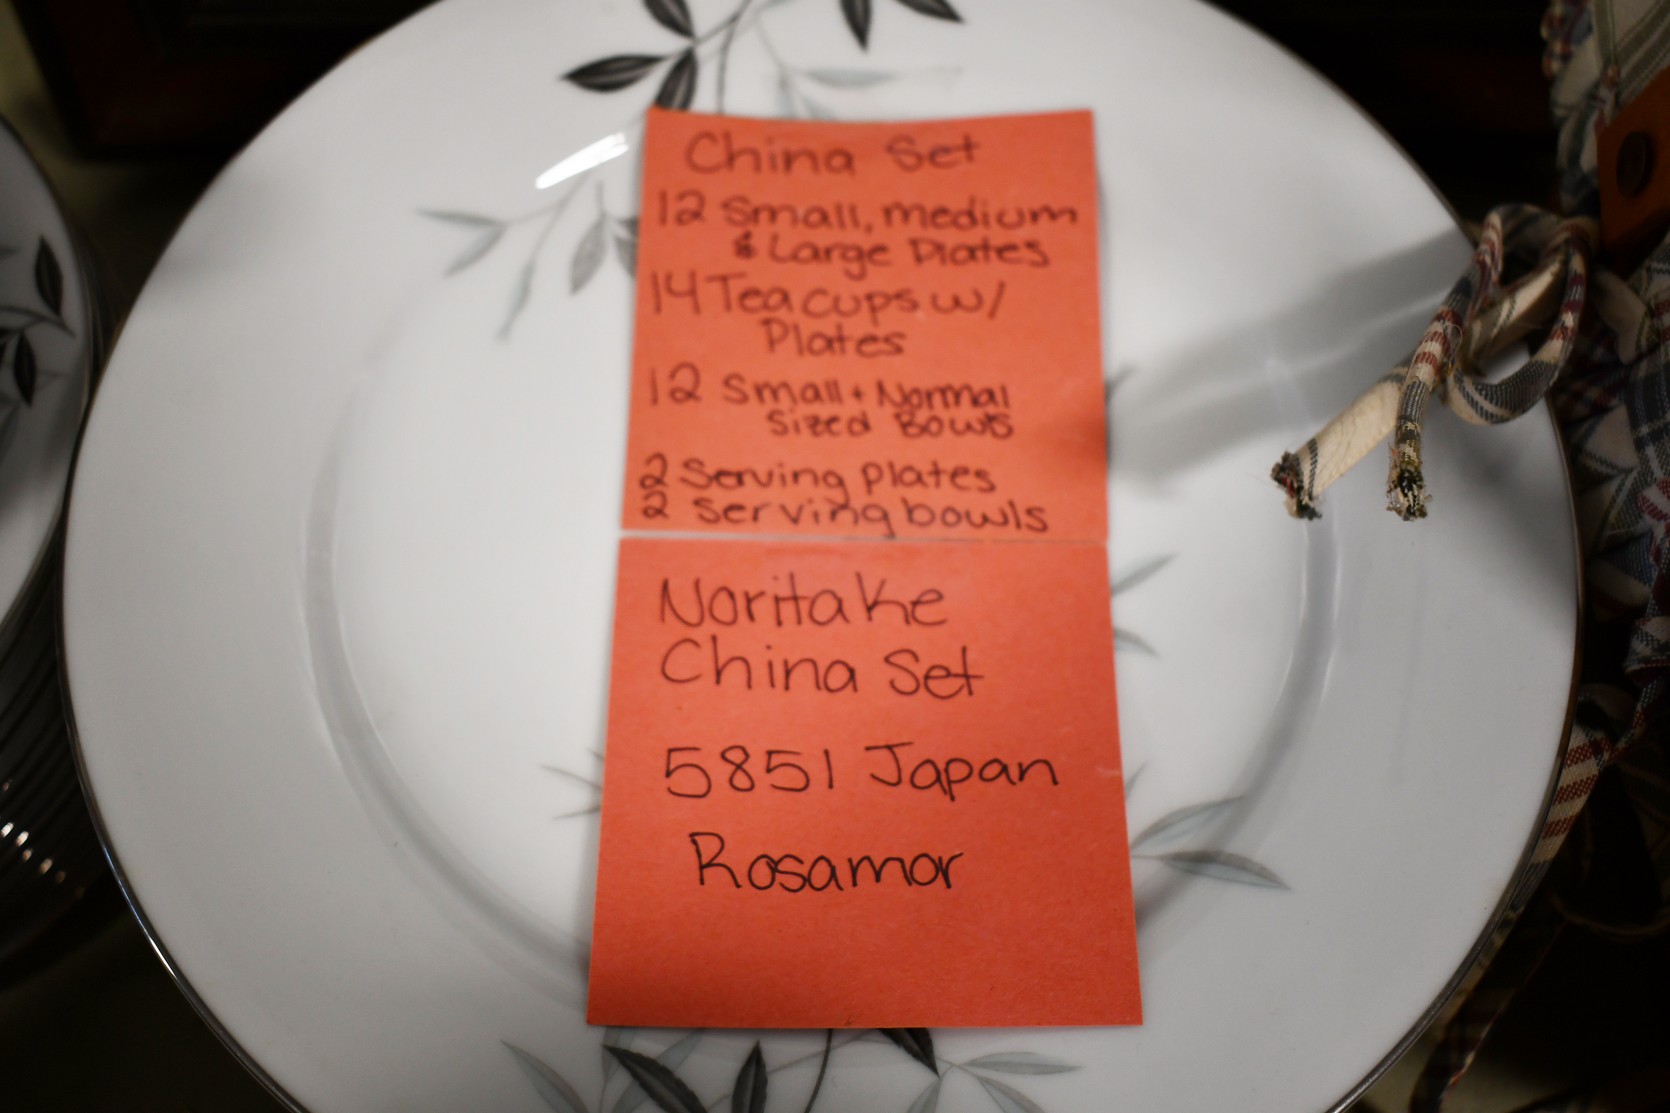 China Set
12 Small, medium
& Large Plates
14 Tea cups w/
Plates
12 Small + Normal
Sized Bowls
2 Serving Plates
2 Serving bowls
Noritake
China Set
5851 Japan
Rosamor